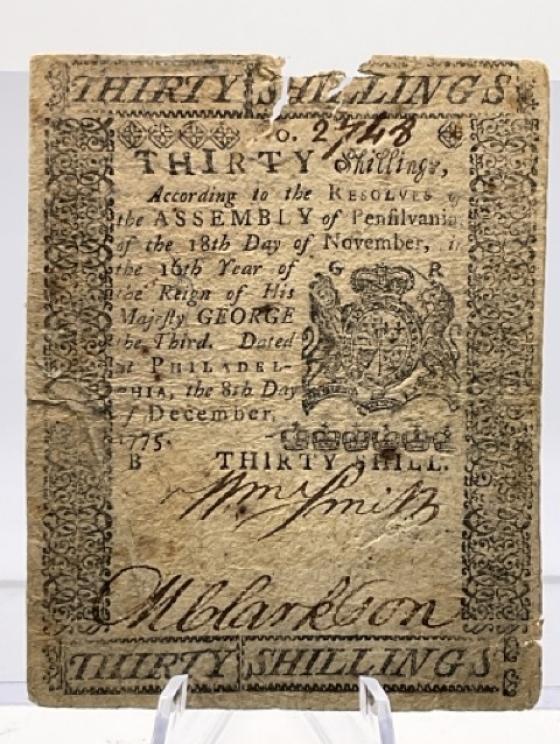 THIRTY SHILLINGS
No. 2748
THIRTY Shillings,
According to the RESOLVES of
the ASSEMBLY of Penſilvania
of the 18th Day of November, in
the 16th Year of
the Reign of His
Majeſty GEORGE
the Third. Dated
at PHILADEL-
PHIA, the 8th Day
of December,
1775.
G R
B THIRTY SHILL.
Wm Smith
M Clarkson
THIRTY SHILLINGS